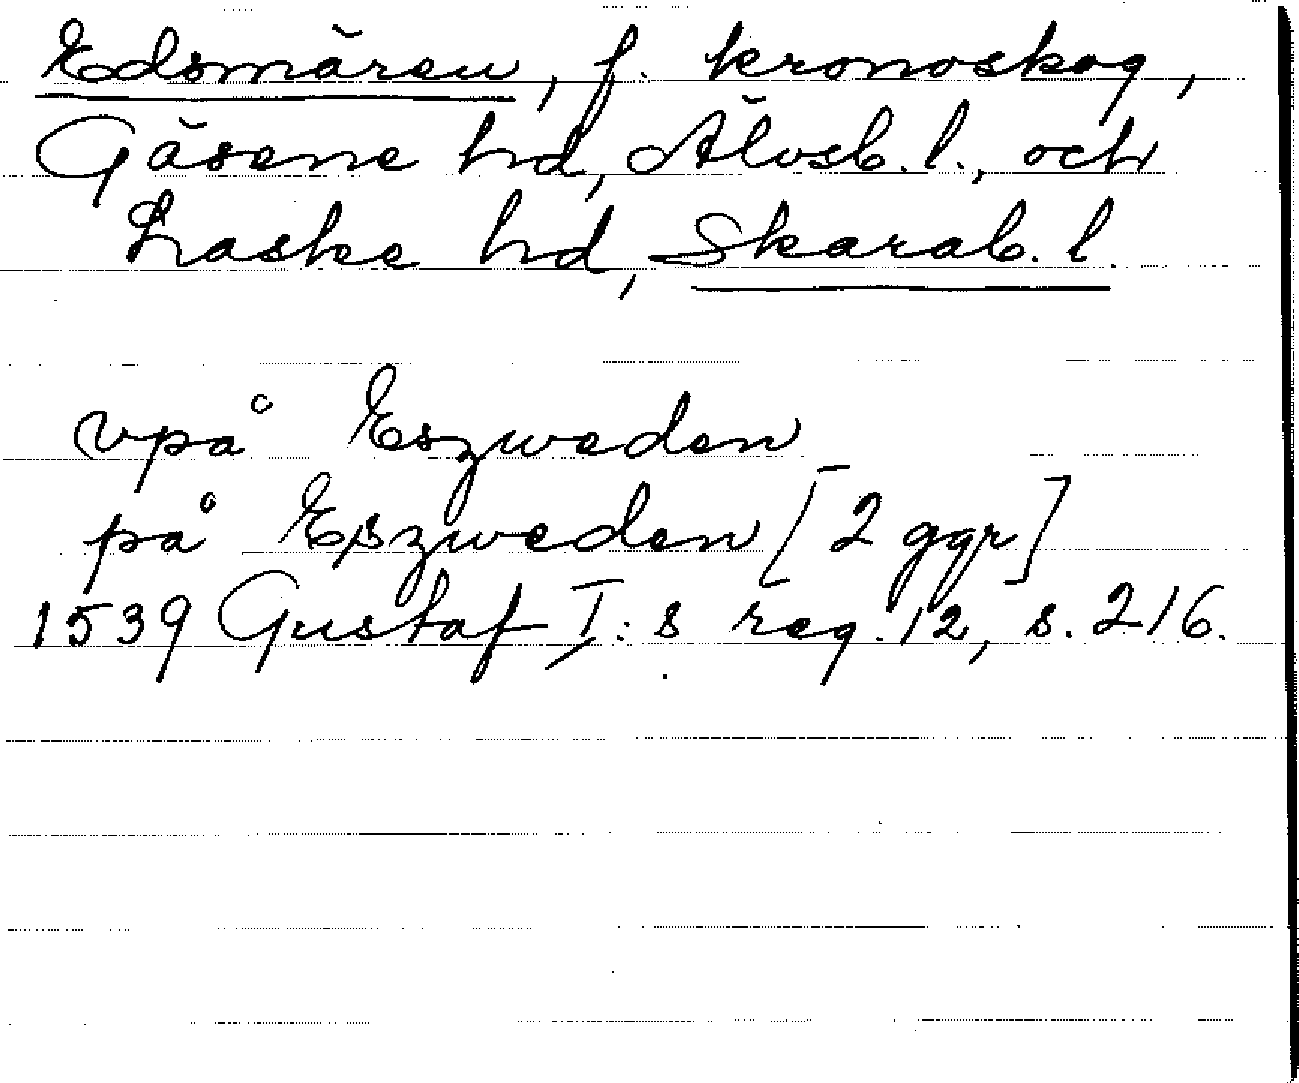 Edsmären, f. kronoskog,
Gäsene hd, Älvsb. l., och
Laske hd, Skarab. l.
vpå Eszweden
på Eßzweden [2 ggr]
1539 Gustaf I:s reg. 12, s. 216.